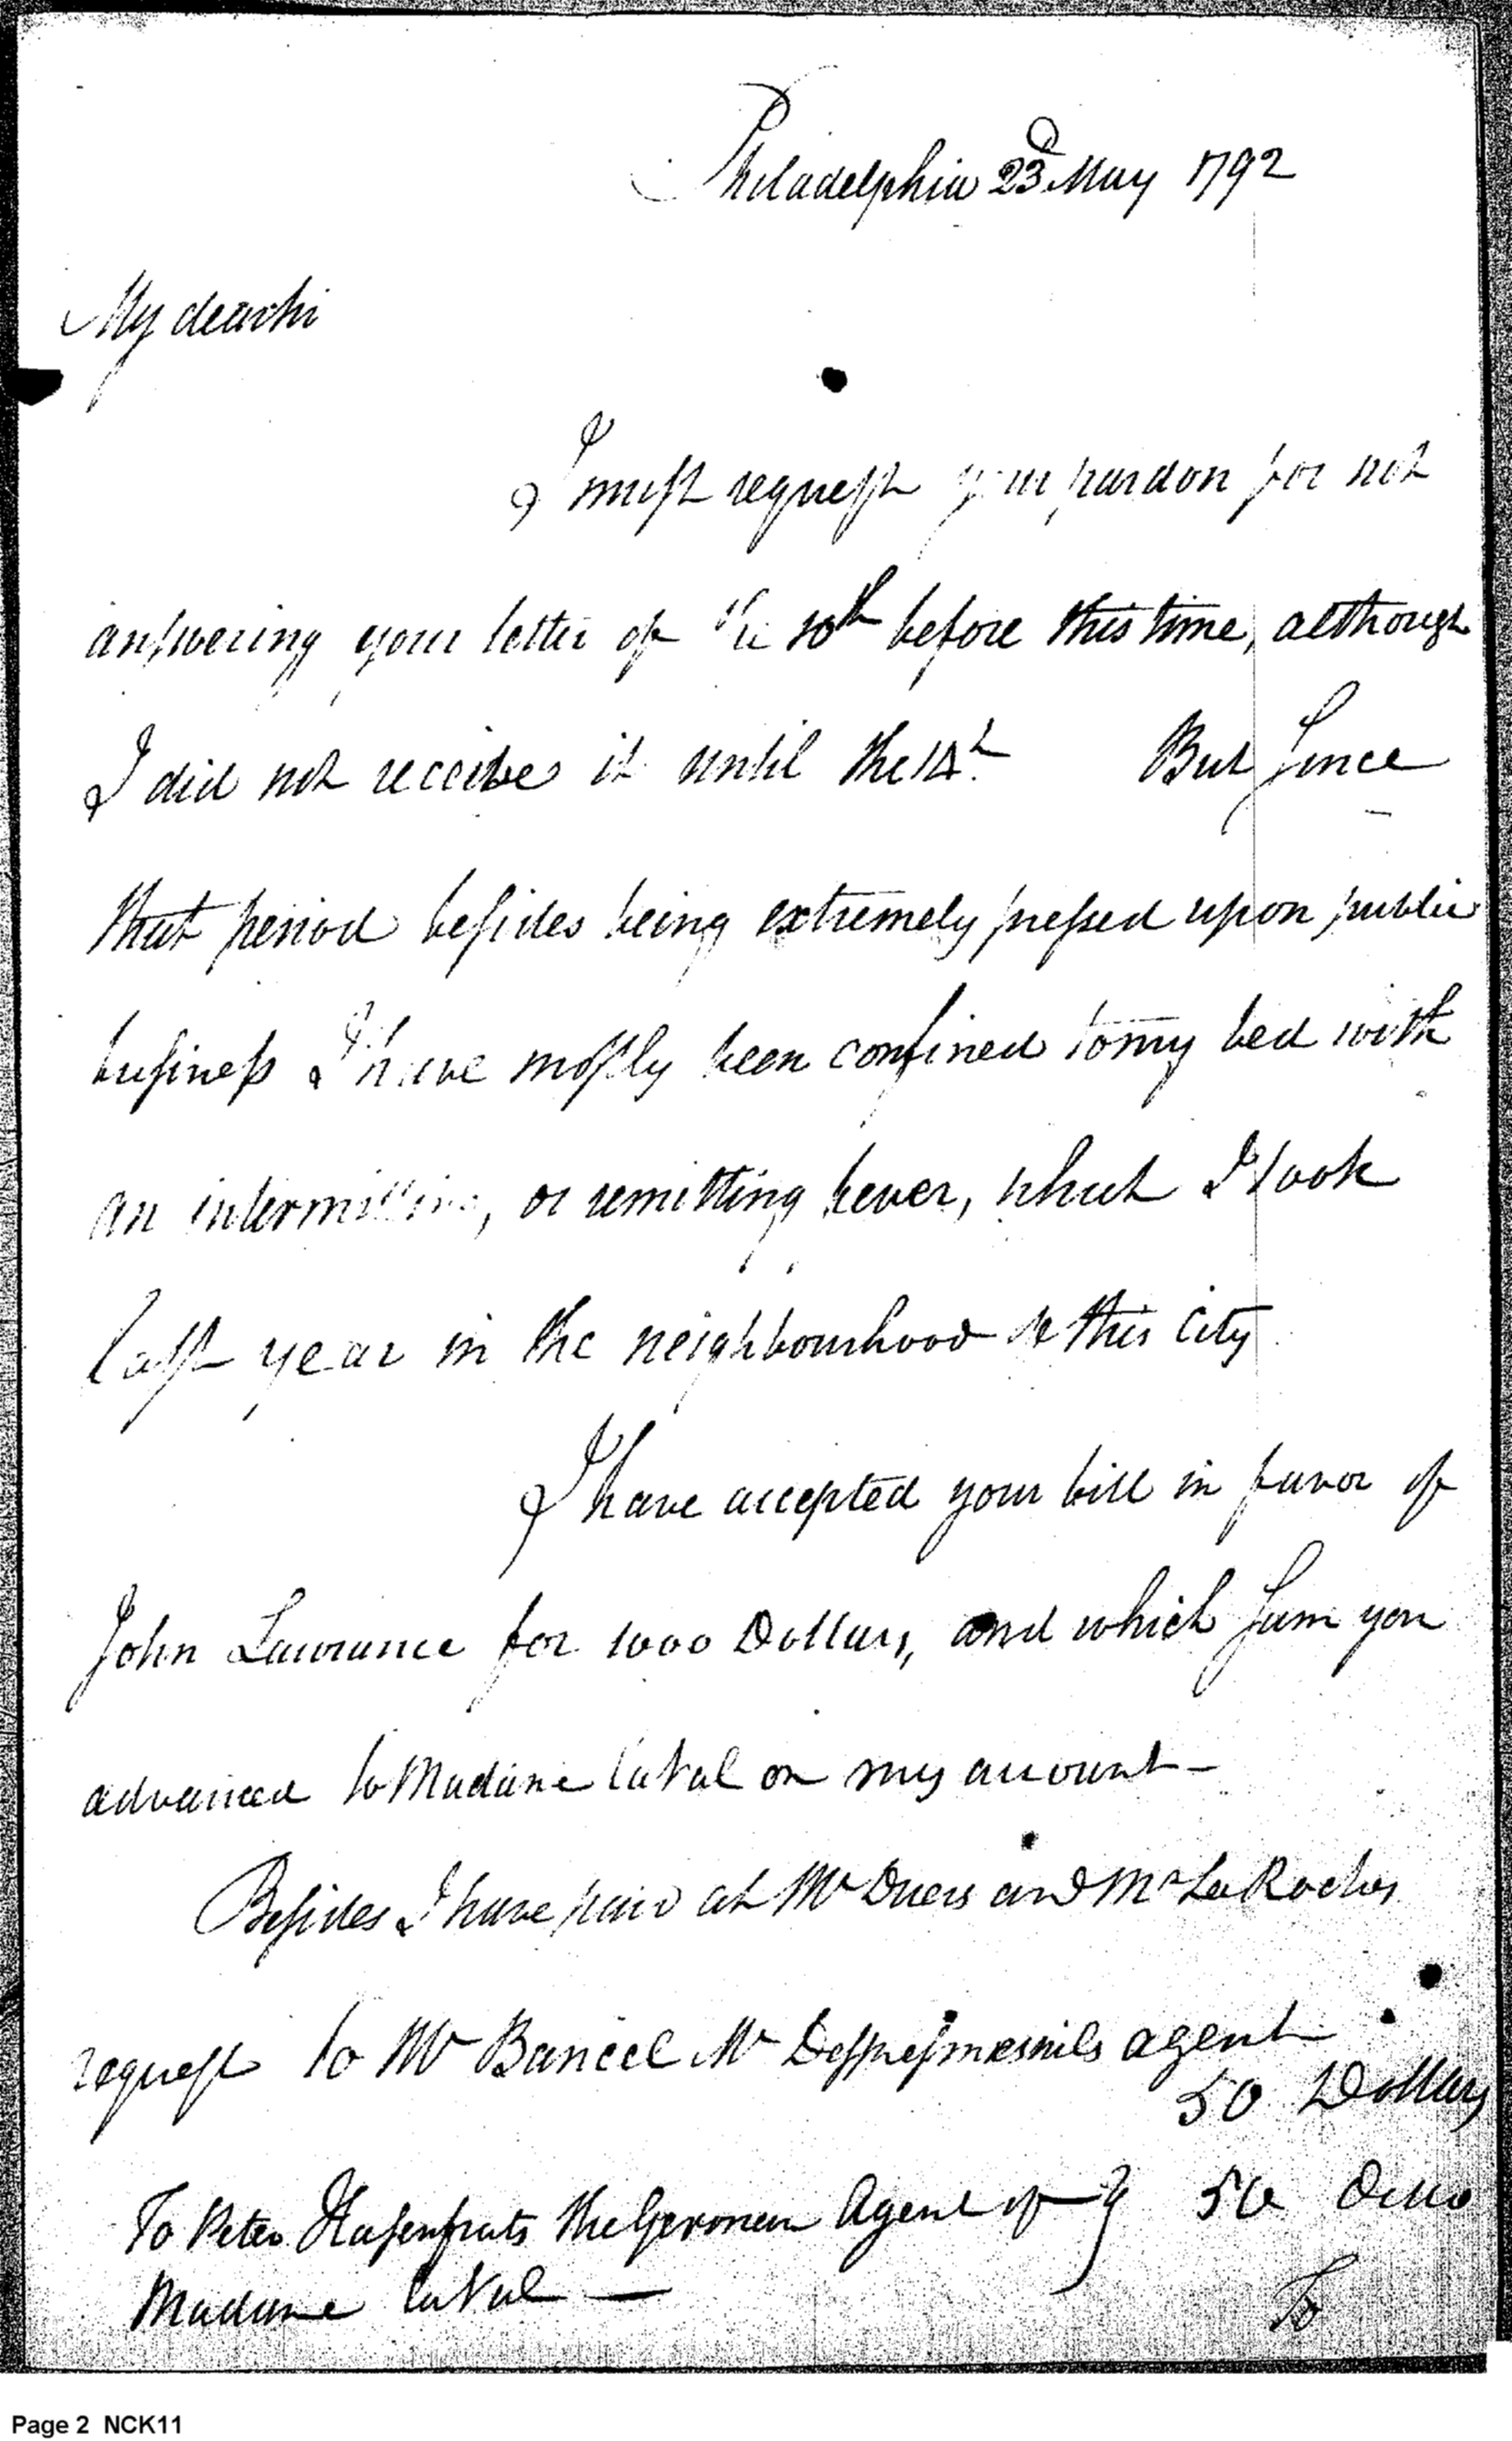 Philadelphia 23d May 1792
My dear sir
I must request your pardon for not
answering your letter of the 10th before this time, although
I did not receive it until the 14th. But since
that period besides being extremely pressed upon public
business I have mostly been confined to my bed with
an intermitting, or remitting fever, which I took
last year in the neighbourhood of this City.
I have accepted your bill in favor of
John Lawrance for 1000 Dollars, and which sum you
advanced to Madame laVal on my account —
Besides I have paid at Mr Duers and Mr La Roches
request to Mr Bancel Mr agent
50 Dollars
To Peter Hasenfrats the German Agent of } 50 Ditto
Madame laVal —
To
Page 2 NCK11